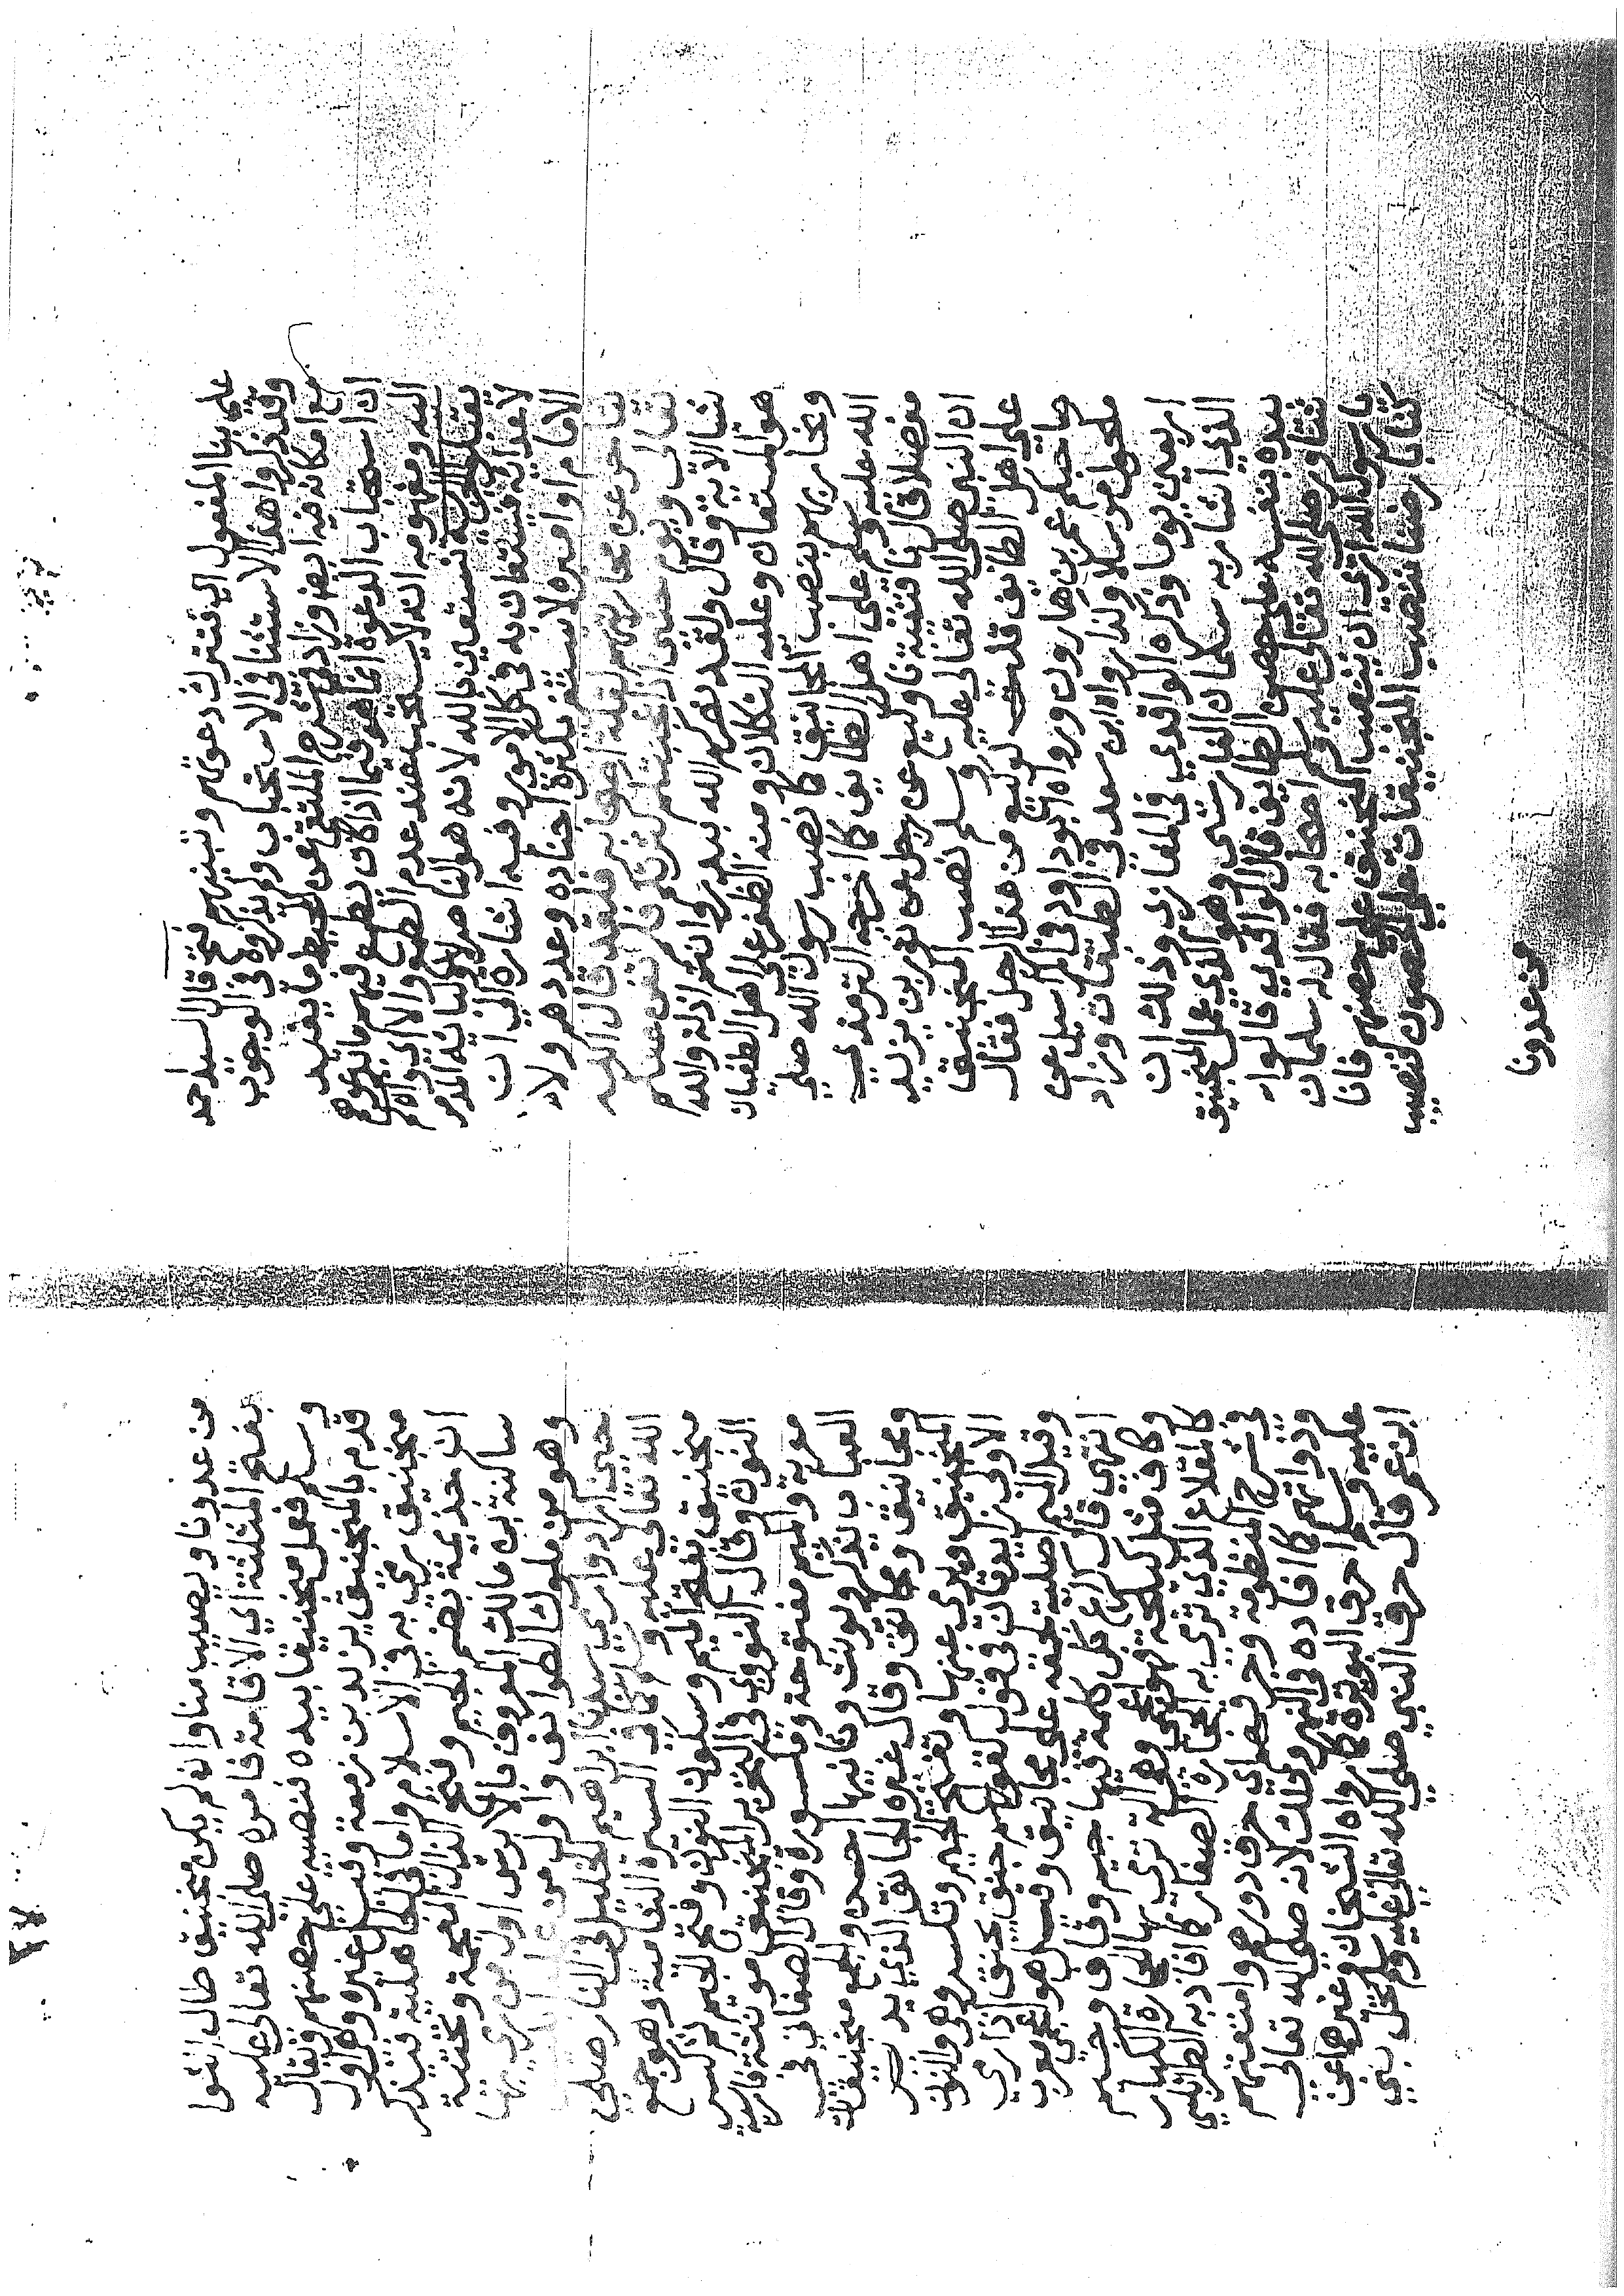 على بنا المفعول اي فتترك دعوتهم ونبيتهم فتح قال السيد احمد
وقد ذكروا هذا الاستثنا في الاستحباب ولم يذكروه في الوجوب
مع امكانه فيه ايضا وزاد في شرح الملتقى عن المحيط ما يفيد
ان استحباب الدعوة انما هو فيما اذا كان يطمع فيهم ما يدعوهم
اليه ومفهومه انه لا يستحب عند عدم الطمع والا اي وان لم
يقبلوا الجزية نستعين بالله لانه هو الناصر لاوليائه المدمر
لاعدائه فيستعان به في كل الامور وفيه اشارة الى ان
الامام او اميره لا يستغر بكثرة اجناده وعددهم ولا
يتاخر عن محاربتهم لقلة اعوانه فلقد قال الله
تعالى ويوم حنين اذ اعجبتكم كثرتكم فلم تغن عنكم
شيئا الاية وقال ولقد نصركم الله ببدر وانتم اذلة والله
هو المستعان وعليه التكلان ومنه الظفر على اهل الطغيان
ونحاربهم بنصب المجانيق كما نصب رسول الله صلى
الله عليه وسلم على اهل الطايف كما اخرجه الترمذي
مفصلا قال نا قتيبة نا وكيع عن رجل عن ثور بن يزيد
ان النبي صلى الله تعالى عليه وسلم نصب المنجنيق
على اهل الطائف قلت لوكيع من هذا الرجل فقال
صاحبكم عمر بن هارون ورواه ابو داود في المراسيل عن
مكحول مرسلا وكذا رواه ابن سعد في الطبقات وزاد
اربعين يوما وذكره الواقدي في المغازي وذلك ان
الذي اشار به سلمان الفارسي وهو الذي عمل المنجنيق
بيده بنفسه على حصن الطايف قال الواقدي قالوا
شاور صلى الله تعالى عليه وسلم اصحابه فقال له سلمان
يا رسول الله ارى ان تنصب المنجنيق على حصنهم فانا
كنا بارضنا ننصب المنجنيقات على الحصون فنصيب
من عدونا
من عدونا ويصيب منا وان لم يكن منجنيق طال الثوا
بفتح المثلثة اي الاقامة فامره صلى الله تعالى عليه
وسلم فعمل منجنيقا بيده فنصبه على حصنهم ويقال
قدم بالمنجنيق يزيد بن زمعة وقيل غيره وهو اول
منجنيق رمي به في الاسلام واما في الجاهلية فيذكر
ان جذيمة بضم الجيم وفتح الذال المعجمة وتحتية
ساكنة بن مالك المعروف بالابرش اول من رمى بها
وهو من ملوك الطوائف واول من
حين ارادوا رمي سيدنا ابراهيم الخليل في النار صلى
الله تعالى عليه وسلم كما في السيرة الشامية وهو جمع
منجنيق بفتح الميم وسكون النون وفتح الجيم ثم كسر
النون وقال النووي في التحرير المنجنيق مونثة فارسية
معربة والميم مفتوحة ومكسورة وقال الصغاني في
العباب يذكر ويونث وتانيثها احسن والجمع منجنيقات
ومجانيق ومجانق وقال غيره المجانق الذي يد
المنجنيق ويرمي عنها وتفتح الجيم وتكسر وهي والنون
الاولى زايدتان في قول لقولهم جنق يجنق اذا رمى
وقيل الميم اصلية لجمعه على مجانيق وقيل هو اعجمي معرب
انتهى قال كراع كل كلمة فيها جيم وقاف او جيم
وكاف مثل كيلجة فهو اعجمي وهي الة ترمى بها الحجارة الكبار
كالمقلاع الذي ترمى به الحجارة الصغار كما افاد به الطرابلسي
في شرح المنظومة وحرقهم اي حرق دورهم وامتعتهم
وذواتهم كما افاده في النهر وذلك لانه صلى الله تعالى
عليه وسلم احرق البويرة كما رواه الشيخان وغيرهما عن
ابن عمر قال حرق النبي صلى الله تعالى عليه وسلم نخل بني